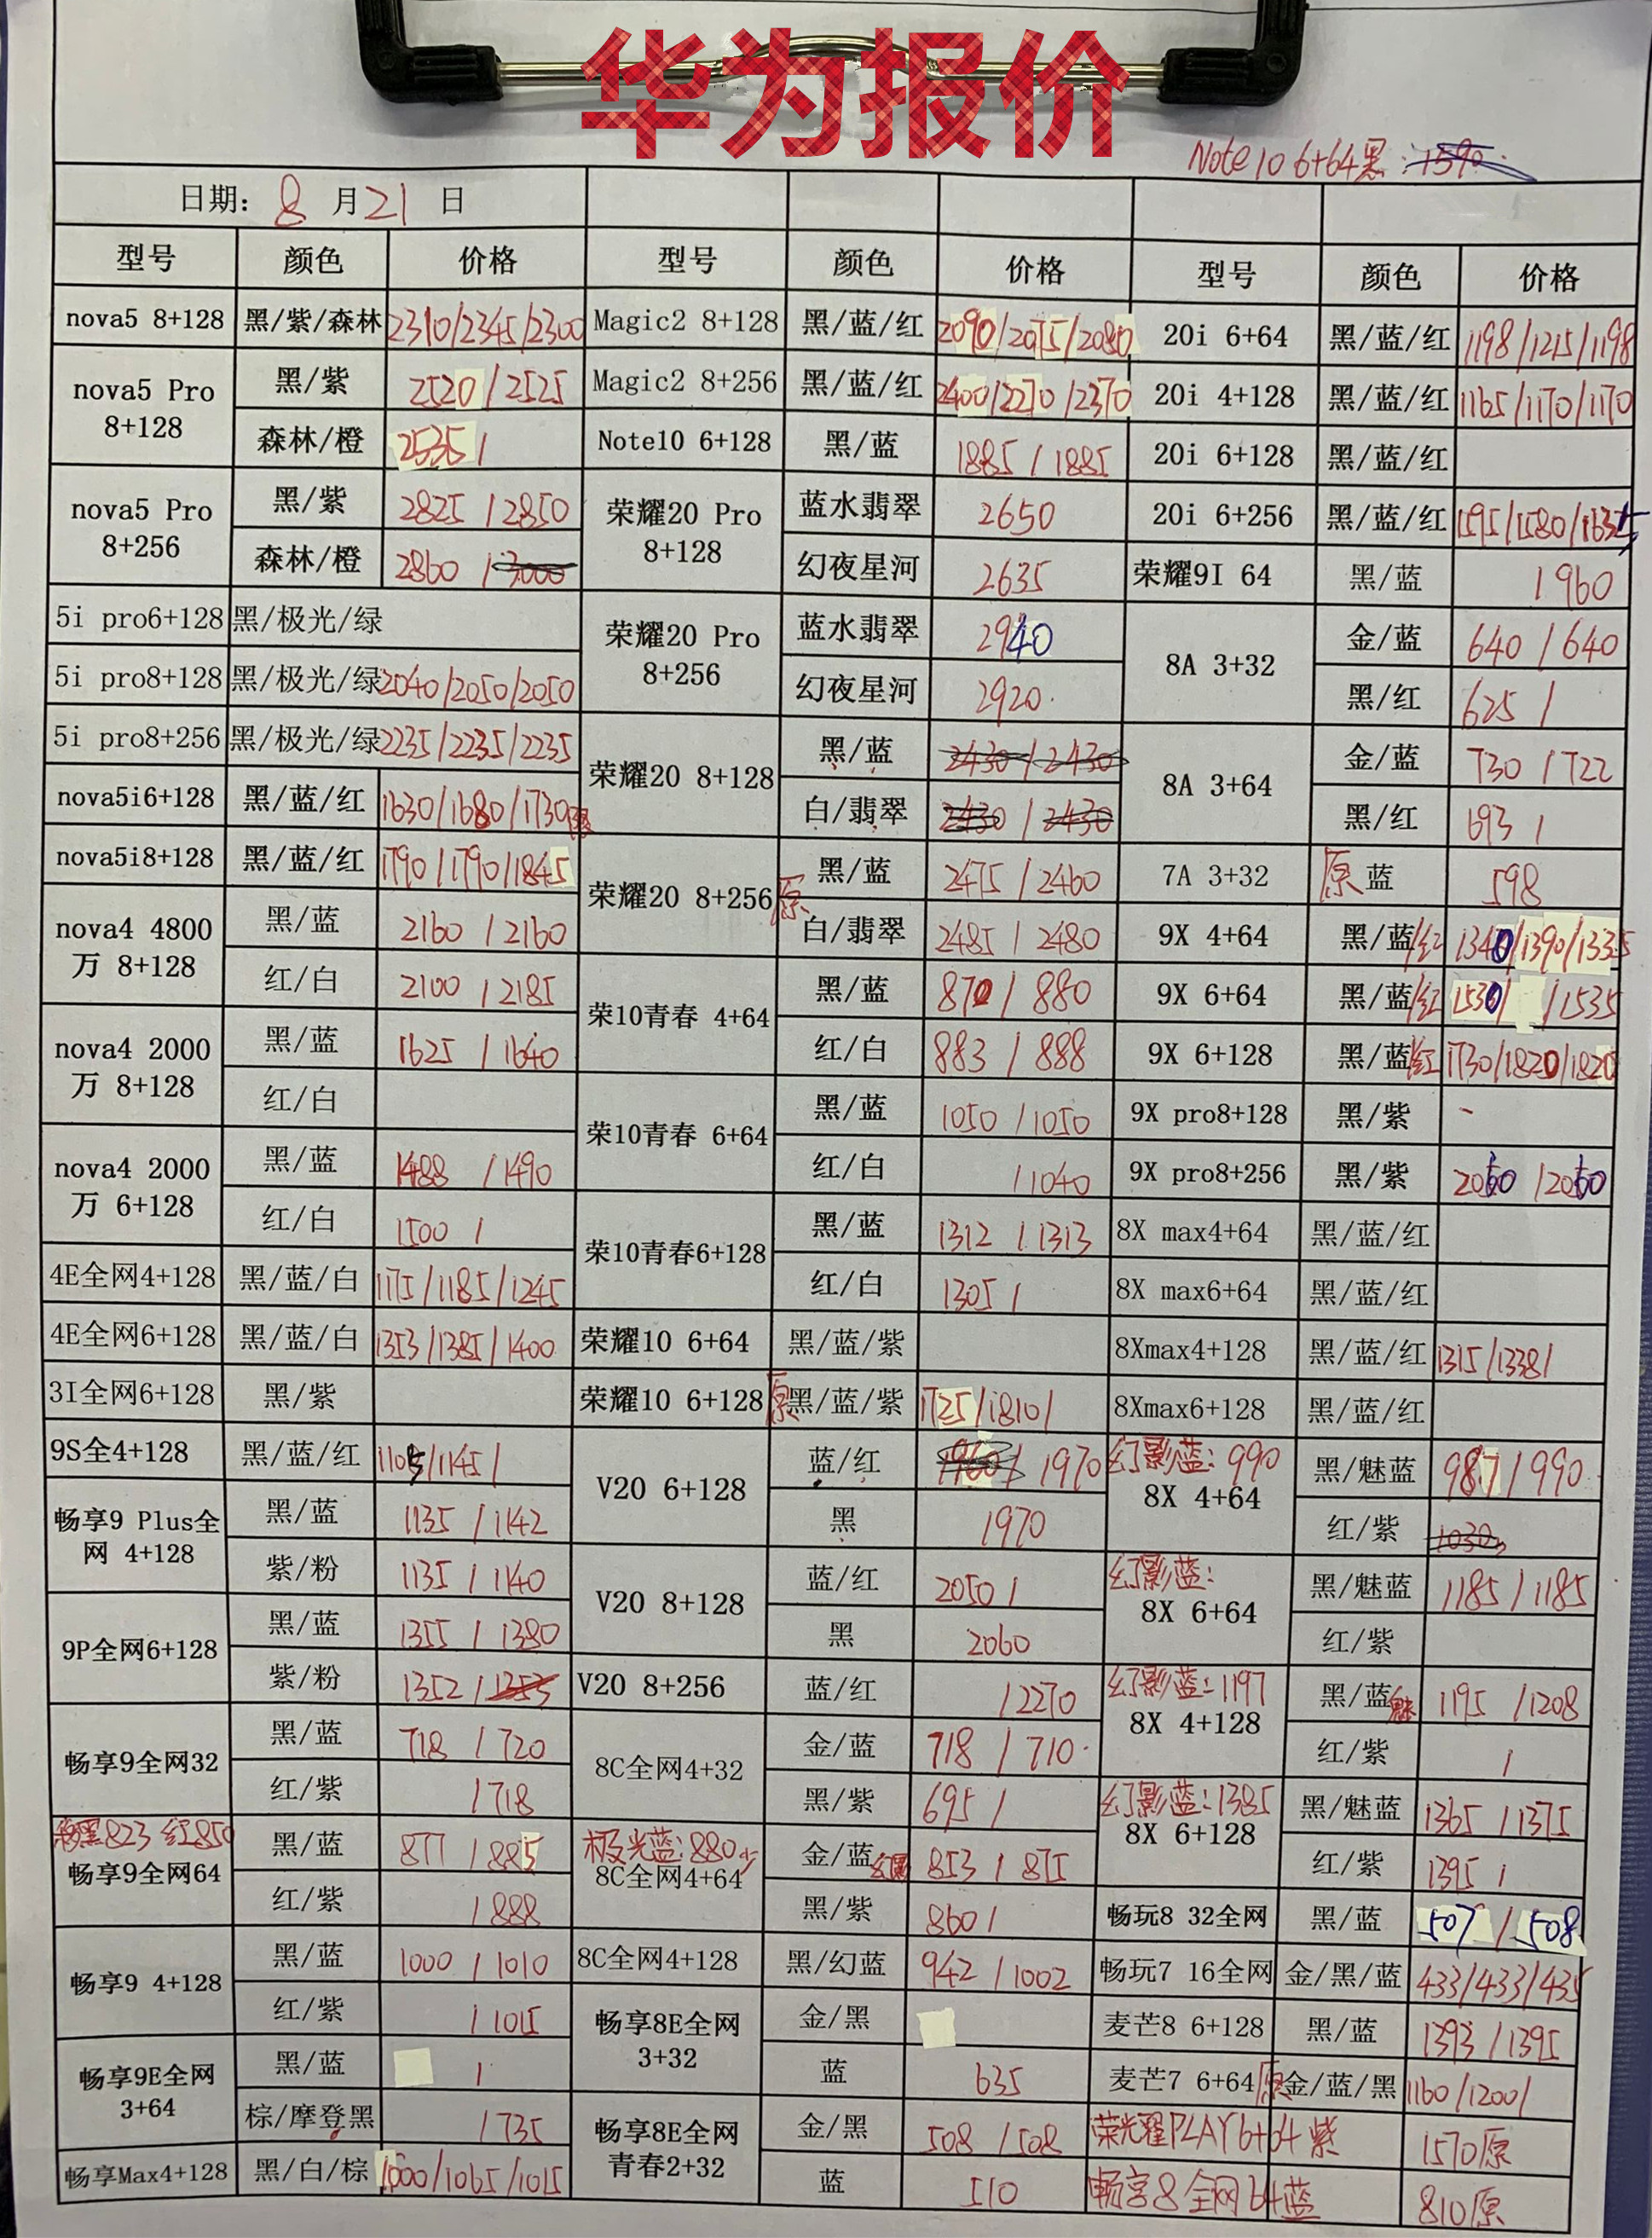 华为报价
Note10 6+64黑:
日期: 8 月 21 日
型号 颜色 价格 型号 颜色 价格 型号 颜色 价格
nova5 8+128 黑/紫/森林 2310/2345/2300 Magic2 8+128 黑/蓝/红 2090/2075/2080 20i 6+64 黑/蓝/红 1198/1215/1198
nova5 Pro 8+128 黑/紫 2520/2525 Magic2 8+256 黑/蓝/红 2400/2270/2370 20i 4+128 黑/蓝/红 1165/1170/1170
森林/橙 2535/ Note10 6+128 黑/蓝 1885/1885 20i 6+128 黑/蓝/红
nova5 Pro 8+256 黑/紫 2825/2850 荣耀20 Pro 8+128 蓝水翡翠 2650 20i 6+256 黑/蓝/红 1595/1580/1635
森林/橙 2860/3000 幻夜星河 2635 荣耀9I 64 黑/蓝 /960
5i pro6+128 黑/极光/绿 荣耀20 Pro 8+256 蓝水翡翠 2940 8A 3+32 金/蓝 640/640
5i pro8+128 黑/极光/绿 2040/2050/2050 幻夜星河 2920 黑/红 625/
5i pro8+256 黑/极光/绿 2235/2235/2235 荣耀20 8+128 黑/蓝 2430/2430 8A 3+64 金/蓝 730/722
nova5i6+128 黑/蓝/红 1630/1680/1730 白/翡翠 2430/2430 黑/红 693/
nova5i8+128 黑/蓝/红 1790/1790/1845 荣耀20 8+256 原 黑/蓝 2475/2460 7A 3+32 原 蓝 598
nova4 4800万 8+128 黑/蓝 2160/2160 白/翡翠 2485/2480 9X 4+64 黑/蓝/红 1340/1390/1335
红/白 2100/2185 荣10青春 4+64 黑/蓝 870/880 9X 6+64 黑/蓝/红 1530/ /1535
nova4 2000万 8+128 黑/蓝 1625/1640 红/白 883/888 9X 6+128 黑/蓝/红 1730/1820/1820
红/白 荣10青春 6+64 黑/蓝 1050/1050 9X pro8+128 黑/紫 -
nova4 2000万 6+128 黑/蓝 1488/1490 红/白 /1040 9X pro8+256 黑/紫 2060/2060
红/白 1500/ 荣10青春6+128 黑/蓝 1312/1313 8X max4+64 黑/蓝/红
4E全网4+128 黑/蓝/白 1175/1185/1245 红/白 1305/ 8X max6+64 黑/蓝/红
4E全网6+128 黑/蓝/白 1353/1385/1400 荣耀10 6+64 黑/蓝/紫 8Xmax4+128 黑/蓝/红 1315/1338/
3I全网6+128 黑/紫 荣耀10 6+128 原 黑/蓝/紫 1725/1810/ 8Xmax6+128 黑/蓝/红
9S全4+128 黑/蓝/红 1105/1145/ V20 6+128 蓝/红 1960/1970 幻影蓝:990 8X 4+64 黑/魅蓝 987/990
畅享9 Plus全网 4+128 黑/蓝 1135/1142 黑 1970 红/紫 1030
紫/粉 1135/1140 V20 8+128 蓝/红 2050/ 幻影蓝: 8X 6+64 黑/魅蓝 1185/1185
9P全网6+128 黑/蓝 1355/1380 黑 2060 红/紫
紫/粉 1352/1353 V20 8+256 蓝/红 /2270 幻影蓝:1197 8X 4+128 黑/蓝 魅 1195/1208
畅享9全网32 黑/蓝 718/720 8C全网4+32 金/蓝 718/710 红/紫 /
红/紫 /718 黑/紫 695/ 幻影蓝:1385 8X 6+128 黑/魅蓝 1365/1375
黑823 红850 畅享9全网64 黑/蓝 877/885 极光蓝:880 8C全网4+64 金/蓝 853/875 红/紫 1395/
红/紫 /888 黑/紫 860/ 畅玩8 32全网 黑/蓝 507/508
畅享9 4+128 黑/蓝 1000/1010 8C全网4+128 黑/幻蓝 942/1002 畅玩7 16全网 金/黑/蓝 433/433/435
红/紫 /1015 畅享8E全网 3+32 金/黑 麦芒8 6+128 黑/蓝 1393/1395
畅享9E全网 3+64 黑/蓝 / 蓝 635 麦芒7 6+64 原 金/蓝/黑 1160/1200/
棕/摩登黑 /735 畅享8E全网青春2+32 金/黑 508/508 荣光耀PLAY6+64 紫 1570原
畅享Max4+128 黑/白/棕 1000/1065/1015 蓝 510 畅享8全网64蓝 810原